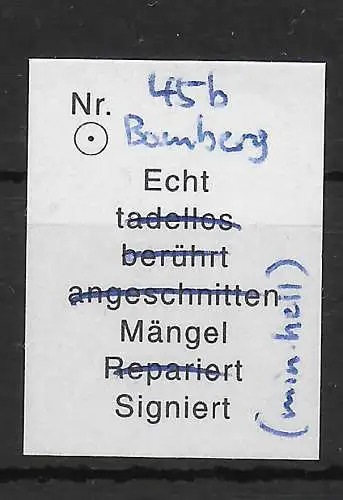 Nr. 45b
Bamberg
Echt
tadellos
berührt
angeschnitten
Mängel
Repariert
Signiert
(min. hell)